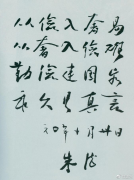 从俭入奢易
从奢入俭难
勤俭建国家
永久是真言
年十月日
朱德